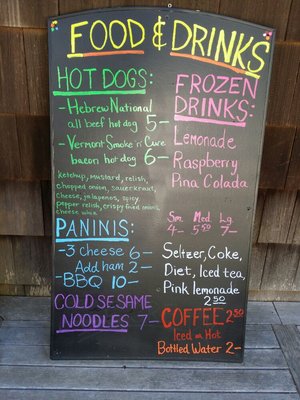 FOOD & DRINKS
HOT DOGS:
- Hebrew National
all beef hot dog 5-
- Vermont Smoke n' Cure
bacon hot dog 6-
ketchup, mustard, relish,
chopped onion, sauerkraut,
cheese, jalapenos, spicy
pepper relish, crispy fried onions,
cheese whiz
PANINIS:
-3 cheese 6-
Add ham 2-
-BBQ 10-
COLD SESAME
NOODLES 7-
FROZEN
DRINKS:
Lemonade
Raspberry
Pina Colada
Sm. Med. Lg.
4- 5- 7-
Seltzer, Coke,
Diet, Iced tea,
Pink lemonade
2.50
COFFEE 2.50
Iced or Hot
Bottled Water 2-